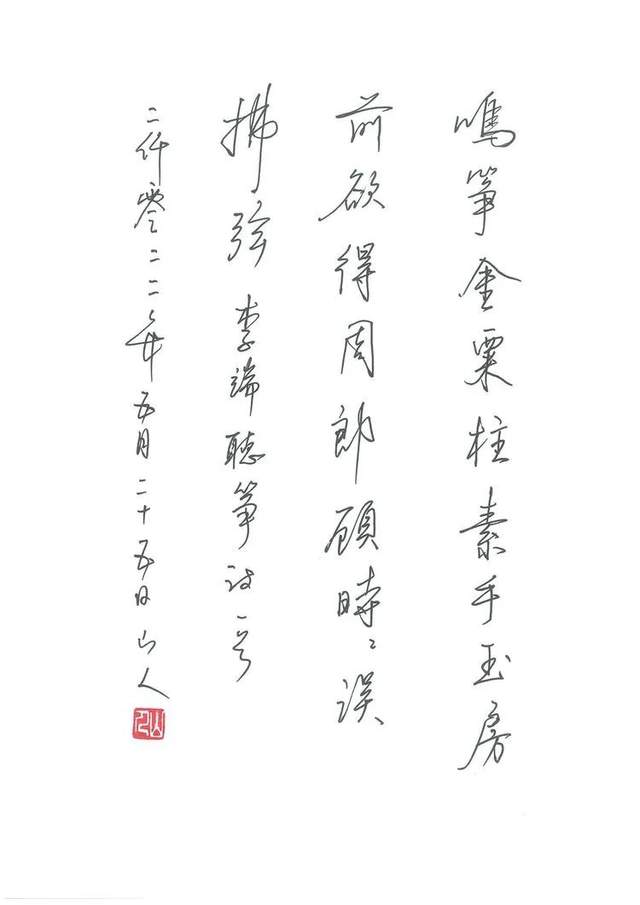 鳴筝金粟柱素手玉房
前欲得周郎顧時〻誤
拂弦 李端聽筝詩一首
二仟零二二年五月二十五日 山人
山人